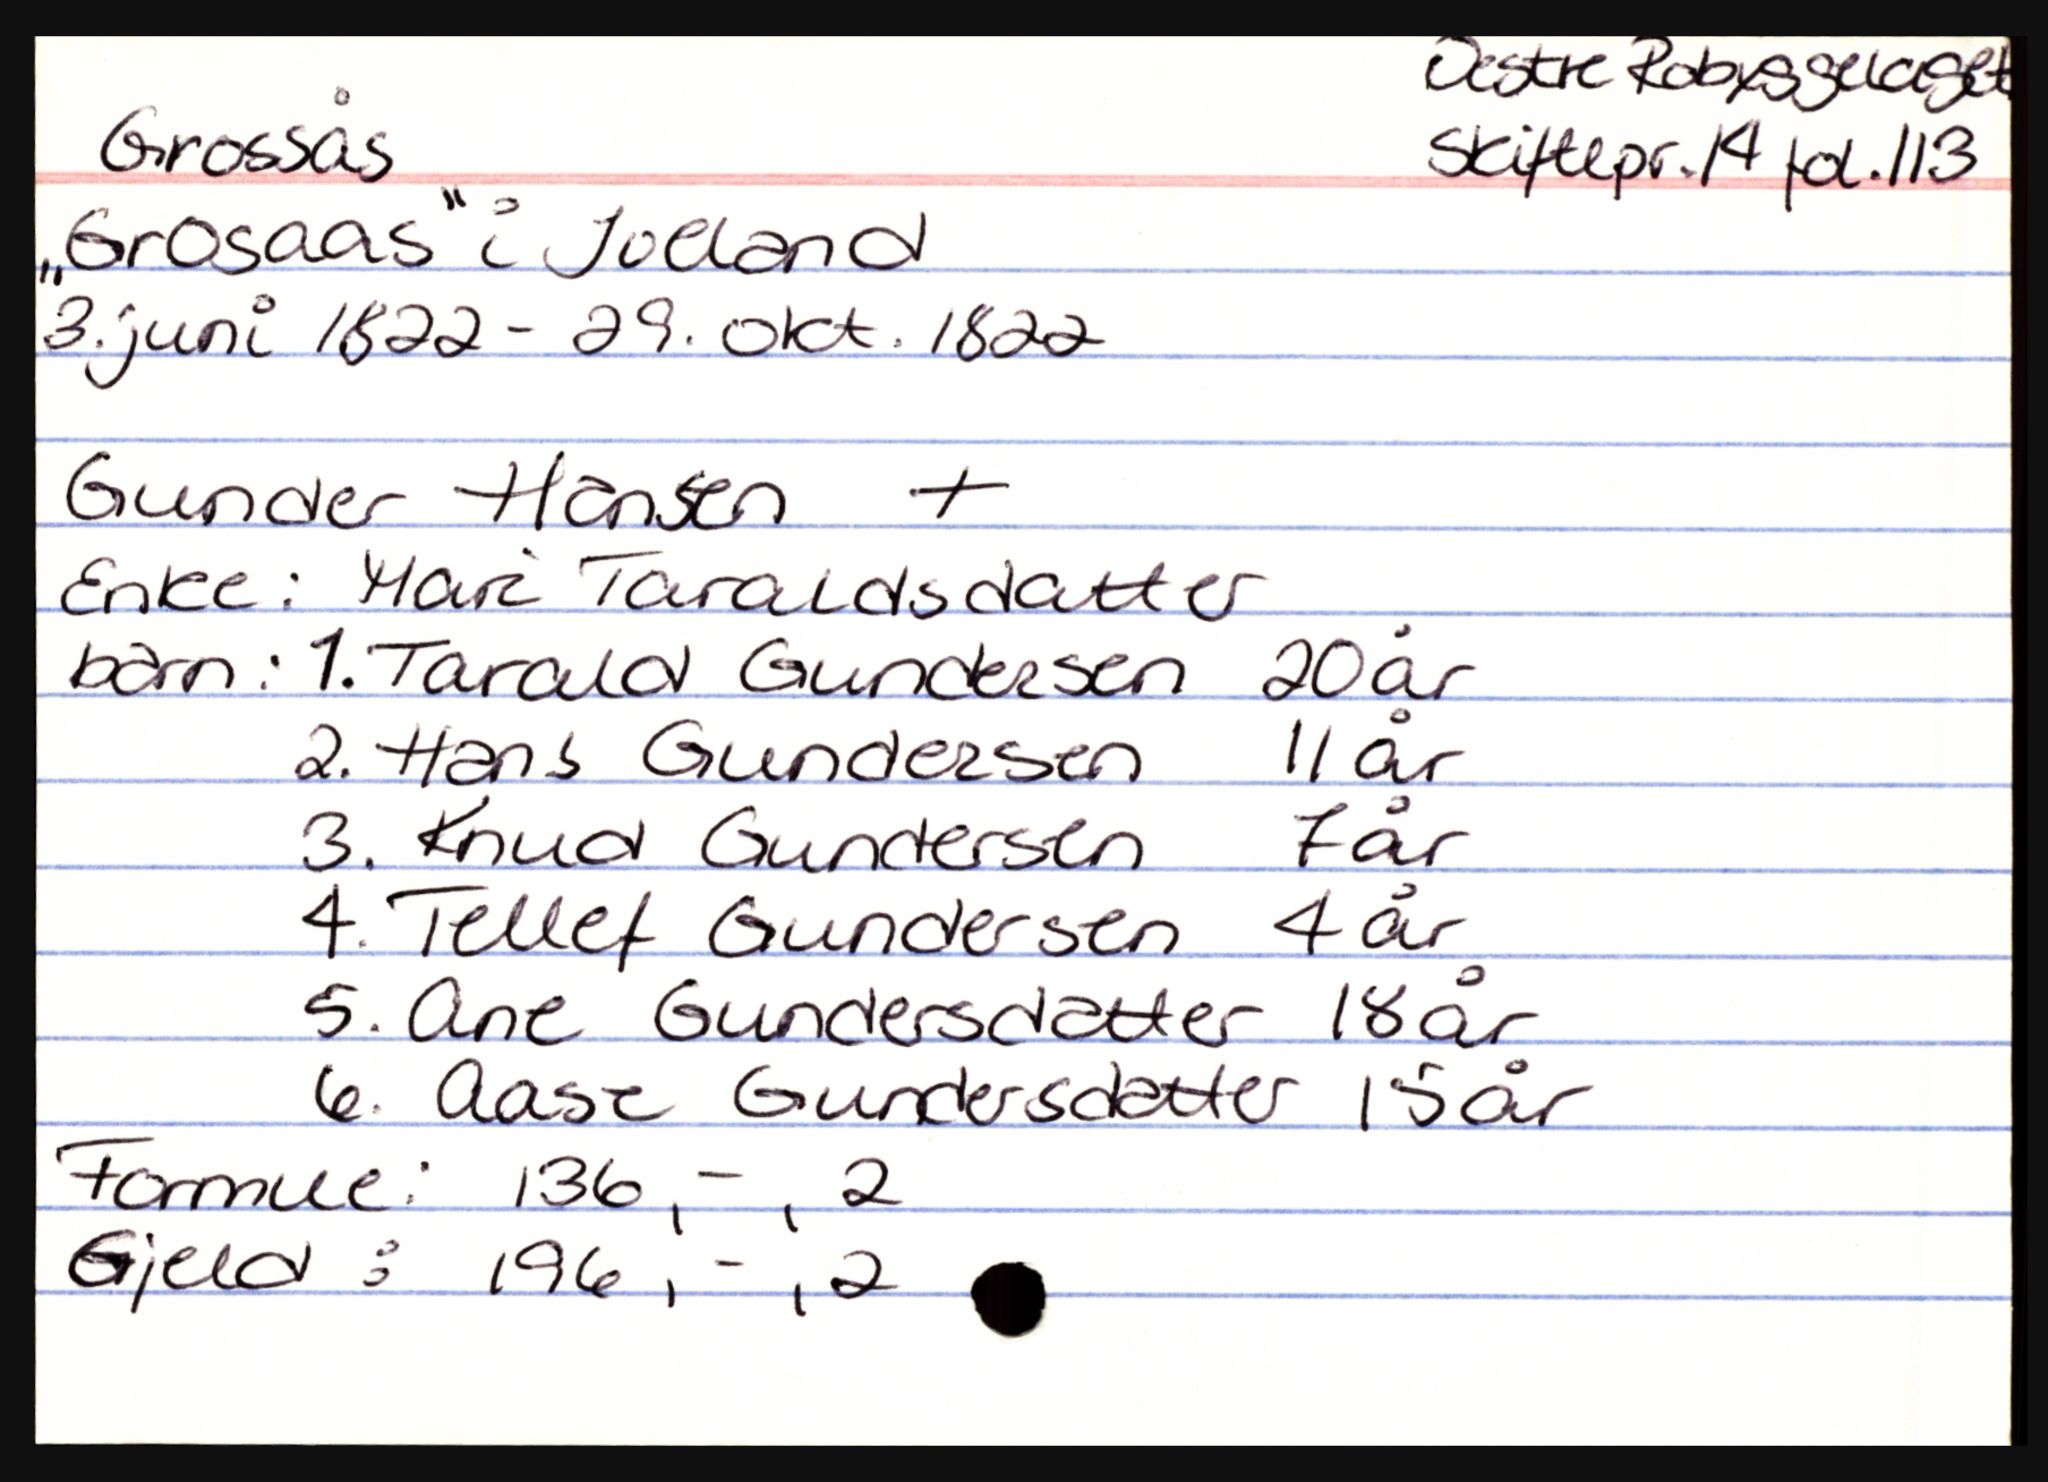 Østre Robyggelaget
Grossås
Skiftepr. 14 fol. 113
„Grosaas" i Jveland
3. juni 1822 - 29. okt. 1822
Gunder Hansen +
Enke: Mari Taraldsdatter
barn: 1. Tarald Gundersen 20 år
2. Hans Gundersen 11 år
3. Knud Gundersen 7 år
4. Tellef Gundersen 4 år
5. Ane Gundersdatter 18 år
6. Aase Gundersdatter 15 år
Formue: 136, -, 2
Gjeld: 196, -, 2